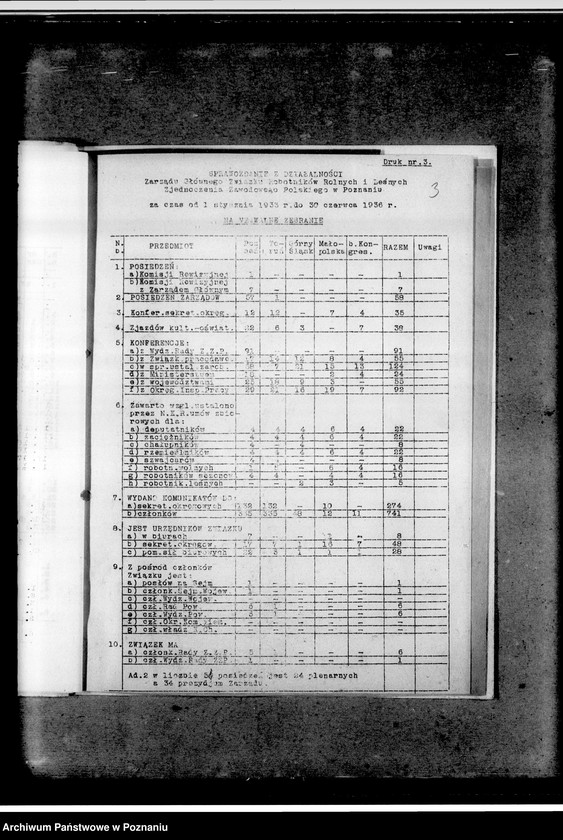 Druk nr.3.
3
SPRAWOZDANIE Z DZIAŁALNOŚCI
Zarządu Głównego Związku Robotników Rolnych i Leśnych
Zjednoczenia Zawodowego Polskiego w Poznaniu
za czas od 1 stycznia 1933 r. do 30 czerwca 1936 r.
NA WALNE ZEBRANIE
N. PRZEDMIOT Górny Śląsk Małopolska b.Kongres. RAZEM Uwagi
1. POSIEDZEŃ:
a)Komisji Rewizyjnej 1 - - - - 1
b)Komisji Rewizyjnej
z Zarządem Głównym 7 - - - - 7
2. POSIEDZEŃ ZARZĄDÓW 57 1 - - - 58
3. Konfer.sekret.okręg. 12 12 - 7 4 35
4. Zjazdów kult.-oświat. 22 6 3 - 7 38
5. KONFERENCJE:
a)z Wydz.Rady Z.Z.P. 91 - - - - 91
b)z Związk.pracodawc. 8 4 55
c)w spr.ustal.zarob. 13 13 124
d)z Ministerstwem - - 2 4 24
e)z województwami 18 9 3 - 55
f)z Okręg.Insp.Pracy 29 21 16 19 7 92
6. Zawarto wzgl.ustalono
przez N.K.R.umów zbio-
rowych dla:
a) deputatników 4 4 4 6 4 22
b) zaciężników 4 4 4 6 4 22
c) chałupników 4 - 4 - - 8
d) rzemieślników 4 4 4 6 4 22
e) szwajcarów 8
f) robotn.wolnych 6 4 16
g) robotników sezonow. 4 4 - 4 4 16
h) robotnik.leśnych - - 2 3 - 5
7. WYDANO KOMUNIKATÓW DO:
a)sekret.okręgowych 132 132 - 10 - 274
b)członków 12 11 741
8. JEST URZĘDNIKÓW ZWIĄZKU
a) w biurach 7 8
b) sekret.okręgow. 7 48
c) pom.sił biurowych 28
9. Z pośród członków
Związku jest:
a) posłów na Sejm 1 - - - - 1
b) członk.Sejm.Wojew. 1
c) czł.Wydz.Wojew. - - - - - -
d) czł.Rad Pow. 5 1 - - - 6
e) czł.Wydz.Pow. - - - 6
f) czł.Okr.Kom.Ziem. - - - - - -
g) czł.władz K.Ch. - - - - - -
10. ZWIĄZEK MA
a) członk.Rady Z.Z.P. 5 1 - - - 6
b) czł.Wydz.Rady ZZP. 1 - - - - 1
Ad.2 w liczbie 58 posiedzeń jest 24 plenarnych
a 34 prezydjum Zarządu.
Archiwum Państwowe w Poznaniu